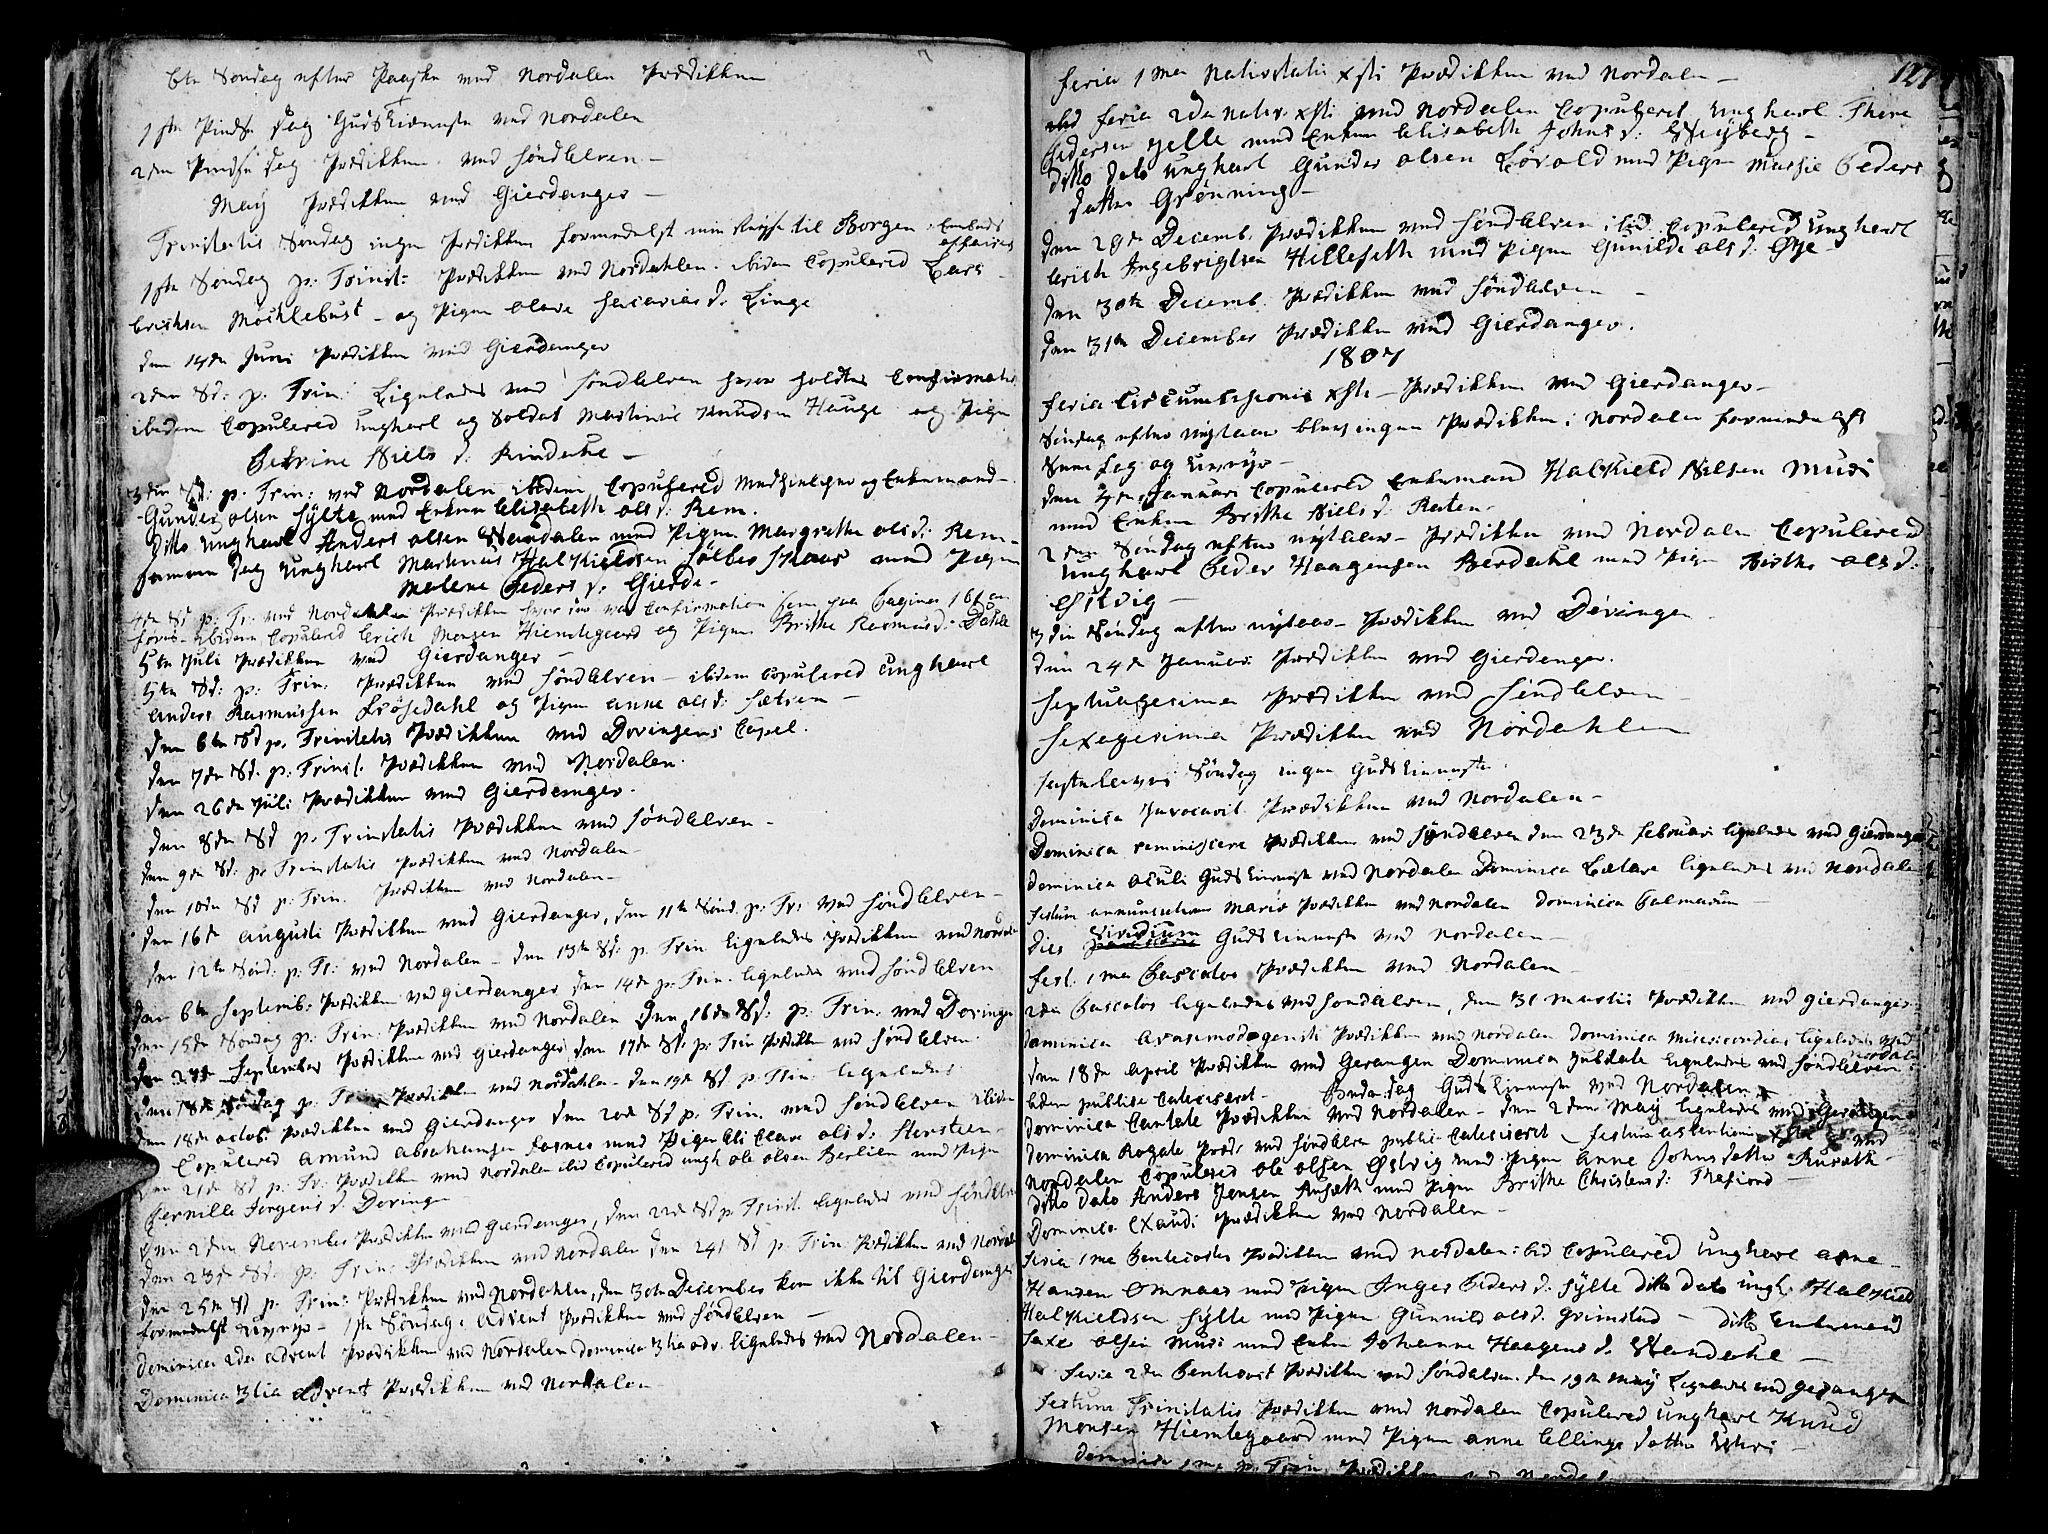 6te Søndag efter Paaske ved Nordalen Prædikken
1ste Pindse Dag Gudstienneste ved Nordalen
2den Pindse Dag Prædikken ved Søndelven –
Maij Prædikken ved Gierdanger –
Trinitatis Søndag ingen Prædikken formedelst min Reyse til Borgen i Embeds
affairer
1ste Søndag p: Trinit: Prædikken ved Nordahlen. ibidem Copulered Lars
Erichsen Mochlebust – og Pigen Olave Sacarias d: Linge
den 14de Juni Prædikken ved Gierdanger
2den Sd: p: Trin: Ligeledes ved Søndelven hvor holdtes Confirmation
ibidem Copulered Ungkarl og Soldat Martinus Knudsen Hauge og Pigen
Petrine Niels d: Rindahl –
3die Sd: p: Trin: ved Nordalen ibidem Copulered Medhielper og Enkemand –
Gunder Olsen Sylte med Enken Elisabeth Ols d: Rem.
Ditto Ungkarl Anders Olsen Standalen med Pigen Margrethe Ols d: Rem –
samme Dag Ungkarl Martinus Halkieldsen Selboskaar med Pigen
Malene Peders d: Gierde –
4de Sd p: Tr: ved Nordahlen Prædikken hvor der var Confirmation pagina 161
ibidem Copulered Erich Monsen Hiemtegaard og Pigen Brithe Rasmus d: Dahle
5te Juli Prædikken ved Gierdanger –
5te Sd: p: Trin: Prædikken ved Søndelven – ibidem Copulered Ungkarl
Anders Rasmussen Løsedahl og Pigen Anne Ols d: Sætren –
den 6te Sd p. Trinitatis Prædikken ved Dovingens Capel.
den 7de Sd. p: Trinit. Prædikken ved Nordalen.
den 26de Juli Prædikken ved Gierdanger.
den 8de Sd p. Trinitatis Prædikken ved Søndelven –
den 9de Sd: p: Trinitatis Prædikken ved Nordalen –
den 10de Sd p: Trin. Prædikken ved Nordalen –
den 16de Augusti Prædikken ved Gierdanger, den 11te Sønd. p: Tr: ved Søndelven –
den 12te Sønd: p: Tr: ved Nordalen – den 13de Sd: p. Trin ligeledes Prædikken ved Nordalen
den 6te Septemb: Prædikken ved Gierdanger den 14de p: Trin. ligeledes ved Søndelven
den 15de Søndag p: Trin: Prædikken ved Nordalen den 16de Sd: p. Trin: ved Dovingen
den 27de September Prædikken ved Gierdanger den 17de Sd: p: Trin Prædikken ved Søndelven.
den 18de Søndag p: Trin Prædikken ved Nordahlen den 19de Sd p: Trin: ligeledes
den 18de Octob: Prædikken ved Gierdanger den 20de Sd p: Trin. ved Søndelven ibidem
Copulered Amund Abrahamsen med Pigen Eli Clare Ols d:
den 21de Sd p: Tr: Prædikken ved Nordalen ibid Copulered Ungk Ole Olsen Berlien med Pigen
Pernille Jørgens d. Døving
den 2den November Prædikken ved Gierdanger, den 22de Sd p: Trinit. ligeledes ved Søndelven
den 23de Sd: p: Trin: Prædikken ved Nordalen den 24de Sd p: Trin: Prædikken ved Nordalen
den 25te Sd p. Trin: Prædikken ved Nordahlen, den 30te December kom ikke til Gierdanger
formedelst Uveyr – 1ste Søndag i Advent Prædikken ved Søndelven –
Dominica 2da Advent Prædikken ved Nordalen Dominica 3tia Adv. ligeledes ved Nordalen –
Dominica 3tia Advent Prædikken ved Nordalen
127
Feria 1ma Nativitatis Xsti Prædikken ved Nordalen –
Feria 2da Nativ. Xsti ved Nordalen Copuleret Ungkarl Thore
Pedersen Relle med Enken Elisabeth Johns d:
Ditto Dato Ungkarl Gunder Olsen Løvold med Pigen Massie Peders
datter Grønning –
den 29de Decemb. Prædikken ved Søndelven ibid. Copulered Ungkarl
Erich Ingebrigtsen Helleseth med Pigen Gunilde Ols d. Øye –
den 30te Decemb. Prædikken ved Søndelven –
den 31te December Prædikken ved Gierdanger.
1807
Feria Circumcisionis Xsti – Prædikken ved Gierdanger –
Søndag efter Nytaar blev ingen Prædikken i Nordalen formedelst
Snee fog og Uveyr –
den 4de Januari Copulered Enkemand Halkield Nilsen Muri
med Enken Brithe Niels d: Relen.
2den Søndag efter Nytaar – Prædikken ved Nordalen Copulered
Ungkarl Peder Haagensen Berdahl med Pigen Birthe Ols d:
Østvig –
3die Søndag efter Nytaar – Prædikken ved Døvingen
den 24de Januar: Prædikken ved Gierdanger.
Septuagesima Prædikken ved Søndelven –
Sexagesima Prædikken ved Nordahlen
Fastelavns Søndag ingen Gudstienneste.
Dominica Invocavit Prædikken ved Nordalen –
Dominica reminiscere Prædikken ved Søndelven den 23de Februari ligeledes ved Gierdanger
Dominica Oculi Gudstienneste ved Nordalen Dominica Lætare ligeledes ved Nordalen
Festum annunciationis Mariæ Prædikken ved Nordalen Dominica Palmarum –
Dies Viridium Gudstienneste ved Nordalen –
Fest. 1ma Pascatos Prædikken ved Nordalen –
2da Pascatos ligeledes ved Søndelven, den 31 Martii Prædikken ved Gierdanger
Dominica Qvasimodogeniti Prædikken ved Nordalen Dominica misericordias ligeledes ved
Nordalen
den 18de April Prædikken ved Gerangen Dominica Jubilate ligeledes ved Søndelven.
Ibidem publice Cateciseret. – Bededag Gudstienneste ved Nordalen
Dominica Cantate Prædikken ved Nordalen – den 2den Maij ligeledes ved Gerangen
Dominica Rogate Præd: ved Søndelven public. Cateciseret – Festum ascentionis Xsti ved
Nordalen Copulered Ole Olsen Østvig med Pigen Anne Johnsdatter Ruseth
Ditto Dato Anders Jensen Ansæth med Pigen Brithe Christens d: Thafiord –
Dominica Exaudi Prædikken ved Nordalen –
Feria 1ma Pentecostes Prædikken ved Nordalen ibid Copulered Ungkarl Arne
Hansen Omnaas med Pigen Inger Peders d. Sylte Ditto Dato Ungk. Halkield
Halkieldsen Sylte med Pigen Gunnild Ols d. Grimstad – Ditto Enkemand
Saxe Olsen Muri med Enken Johanne Haagens d. Standahl –
Feria 2da Pentecost Prædikken ved Søndelven. den 19de Maij ligeledes ved Gerangen
Festum Trinitatis Prædikken ved Nordalen Copulered Ungkarl Knud
Monsen Hiemtegaard med Pigen Anne Ellings datter Uhri –
Dominica 1ma p. Trin: Prædikken ved Nordalen